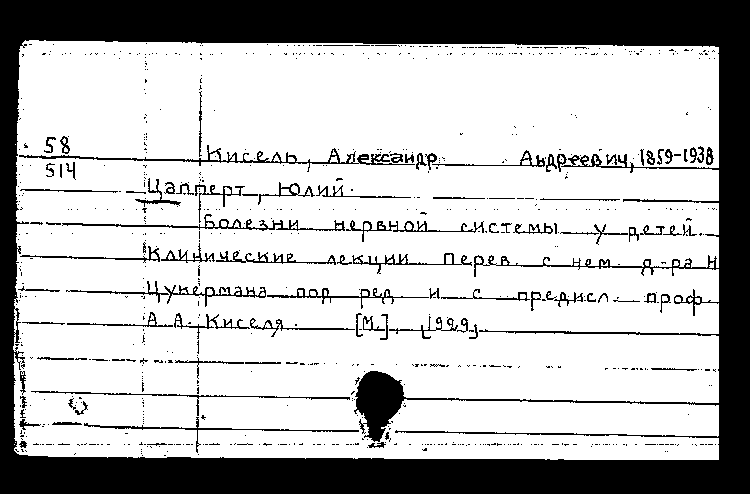 58
514
Кисель, Александр Андреевич, 1859-1938
Цапперт, Юлий.
Болезни нервной системы у детей.
Клинические лекции. Перев. с нем. д-ра Н
Цукермана под ред и с предисл. проф.
А. А. Киселя. [М.], [1929].